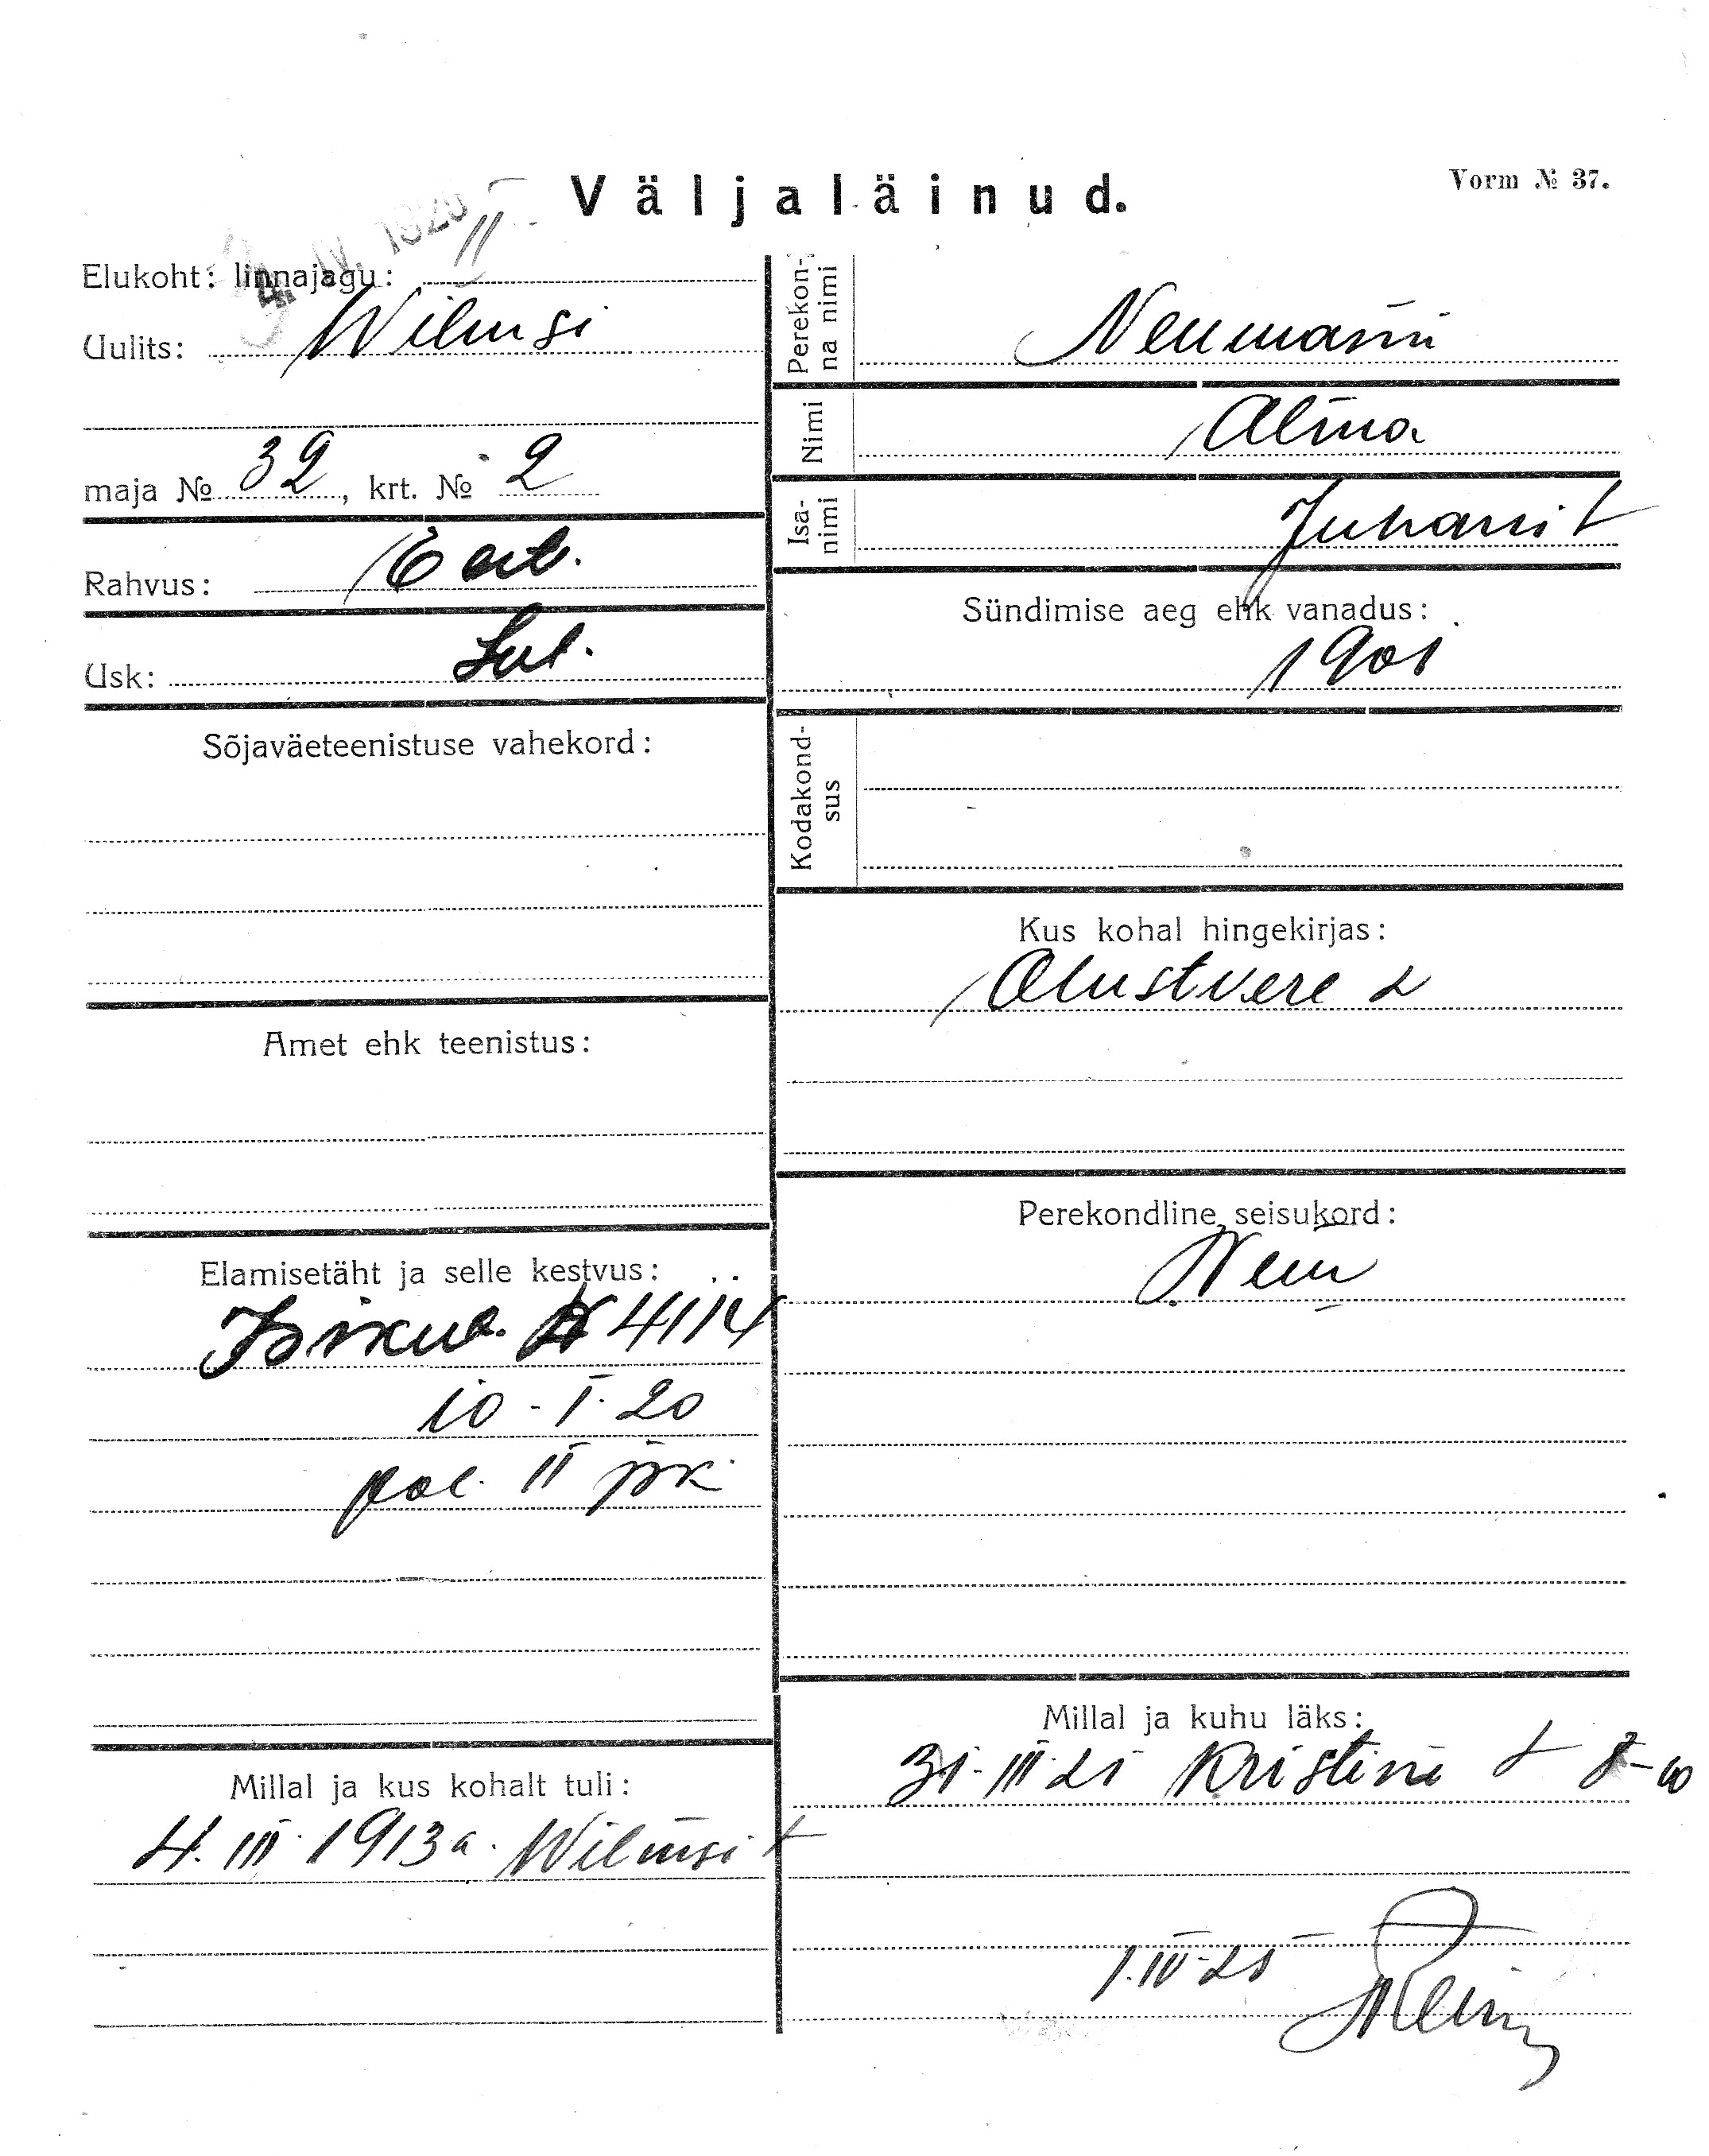 Väljaläinud.
Vorm № 37.
4. IV. 192
Elukoht: linnajagu: II
Uulits: Wilmsi
maja № 32, krt. № 2
Rahvus: Eest.
Usk: Lut.
Sõjaväeteenistuse vahekord:
Amet ehk teenistus:
Elamisetäht ja selle kestvus:
Isiku № 4114
10-I-20
pol. II jsk
Millal ja kus kohalt tuli:
4. III. 1913 a. Wilmsi t
Perekonna nimi Neumann
Nimi Alma
Isanimi Juhani t
Sündimise aeg ehk vanadus:
1901
Kodakondsus
Kus kohal hingekirjas:
Olustvere v
Perekondline seisukord:
Millal ja kuhu läks:
31-III-21 Kristine t
1.IV-21